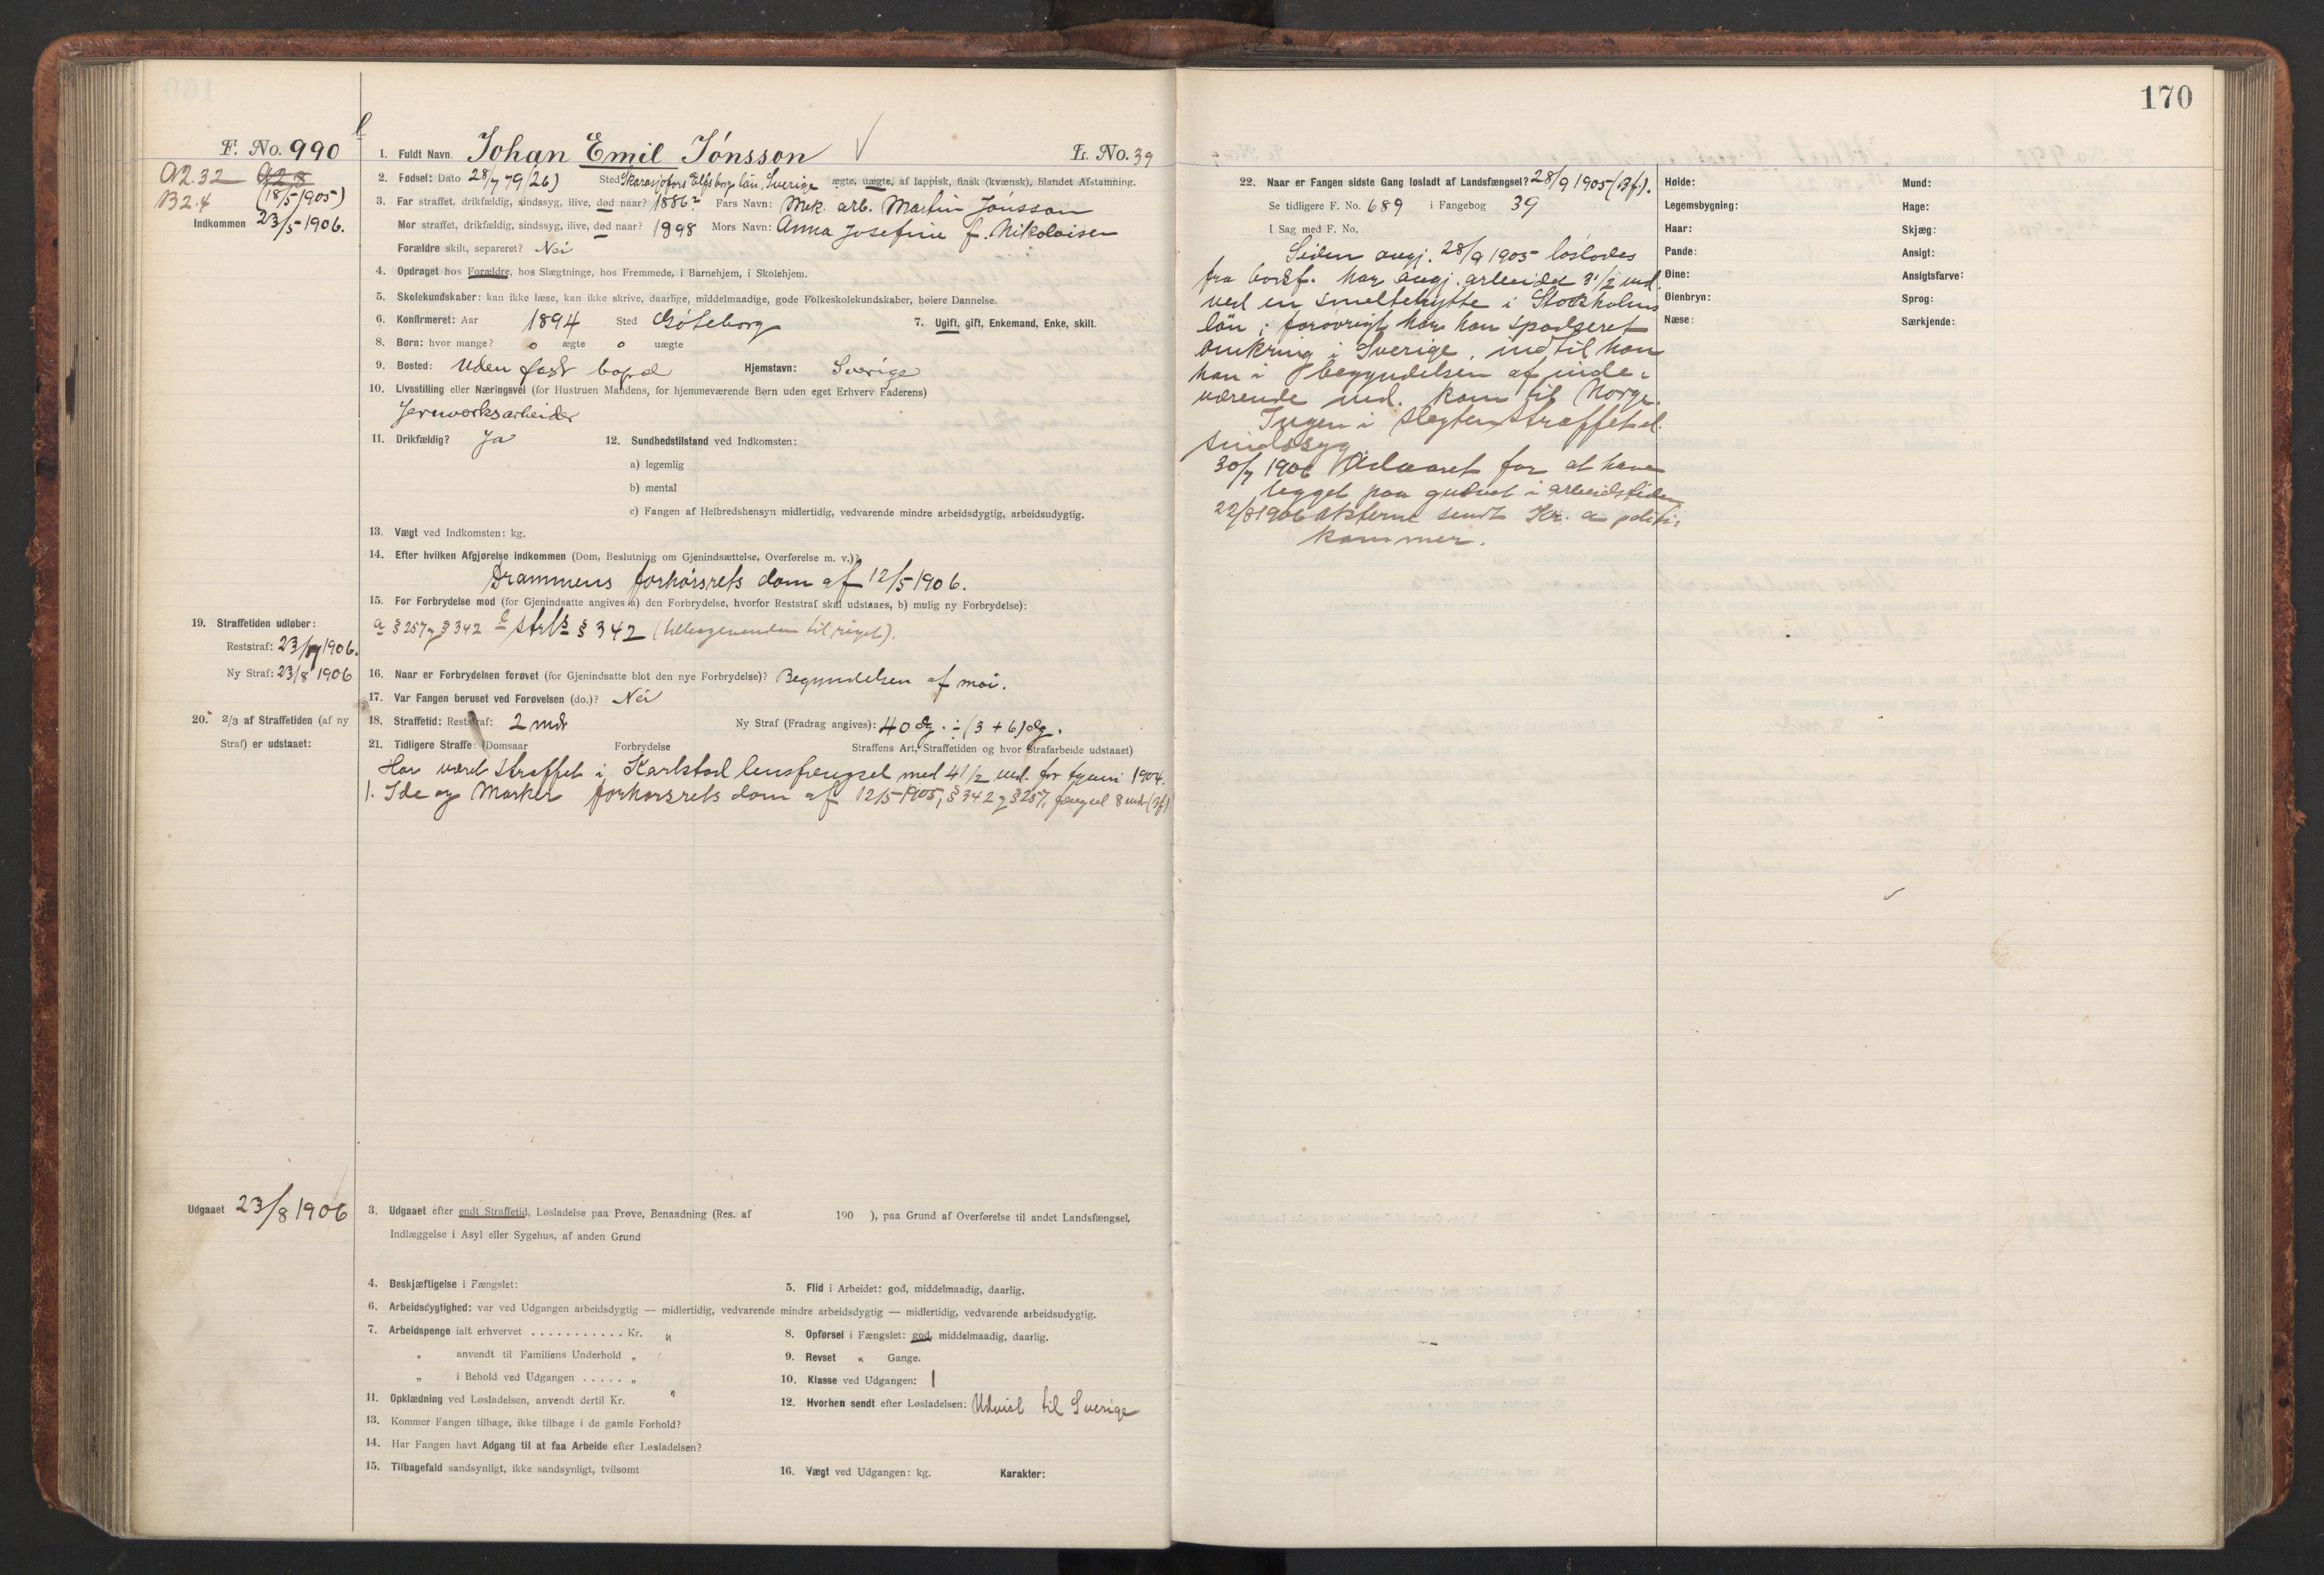 170
F. No. 990
A2.32 A2.8
B2.4 (18/5 1905)
Indkommen 23/5-1906.
1. Fuldt Navn. Johan Emil Jónsson L. No. 39
2. Fødsel: Dato 28/7 79 (26) Sted Elfsborgs län. Sverige ægte, uægte, af lappisk, finsk (kvænsk), blandet Afstamning.
3. Far straffet, drikfældig, sindssyg, ilive, død naar? 1886? Fars Navn: Mek. arb. Martin Jónsson
Mor straffet, drikfældig, sindssyg, ilive, død naar? 1898 Mors Navn: Anna Josefine f. Nikolaisen
Forældre skilt, separeret? Nei
4. Opdraget hos Forældre, hos Slægtninge, hos Fremmede, i Barnehjem, i Skolehjem.
5. Skolekundskaber: kan ikke læse, kan ikke skrive, daarlige, middelmaadige, gode Folkeskolekundskaber, høiere Dannelse.
6. Konfirmeret: Aar 1894 Sted Göteborg 7. Ugift, gift, Enkemand, Enke, skilt.
8. Børn: hvor mange? 0 ægte 0 uægte
9. Bosted: Uden fast bopæl Hjemstavn: Sverige
10. Livsstilling eller Næringsvei (for Hustruen Mandens, for hjemmeværende Børn uden eget Erhverv Faderens)
Jernverksarbeider
11. Drikfældig? Ja 12. Sundhedstilstand ved Indkomsten:
a) legemlig
b) mental
c) Fangen af Helbredshensyn midlertidig, vedvarende mindre arbeidsdygtig, arbeidsudygtig.
13. Vægt ved Indkomsten: kg.
14. Efter hvilken Afgjørelse indkommen (Dom, Beslutning om Gjenindsættelse, Overførelse m. v.)?
Drammens forhørsrets dom af 12/5-1906.
15. For Forbrydelse mod (for Gjenindsatte angives a) den Forbrydelse, hvorfor Reststraf skal udstaaes, b) mulig ny Forbrydelse):
a § 257 og § 342 b § 342 (tilbagevenden til riget).
19. Straffetiden udløber:
Reststraf: 23/7 1906.
Ny Straf: 23/8 1906
16. Naar er Forbrydelsen forøvet (for Gjenindsatte blot den nye Forbrydelse)? Begyndelsen af mai.
17. Var Fangen beruset ved Forøvelsen (do.)? Nei
20. 2/3 af Straffetiden (af ny
Straf) er udstaaet:
18. Straffetid: Reststraf: 2 mdr Ny Straf (Fradrag angives): 40 dg. ÷ (3 + 6) dg.
21. Tidligere Straffe: (Domsaar Forbrydelse Straffens Art, Straffetiden og hvor Strafarbeide udstaaet)
Har været straffet i Karlstad lensfængsel med 4 1/2 md. for tyveri 1904.
1. Ide og Marker forhørsrets dom af 12/5-1905, § 342 og § 257, fængsel 8 mdr (Bf.)
Udgaaet 23/8 1906
3. Udgaaet efter endt Straffetid, Løsladelse paa Prøve, Benaadning (Res. af 190 ), paa Grund af Overførelse til andet Landsfængsel.
Indlæggelse i Asyl eller Sygehus, af anden Grund
4. Beskjæftigelse i Fængslet: 5. Flid i Arbeidet: god, middelmaadig, daarlig.
6. Arbeidsdygtighed: var ved Udgangen arbeidsdygtig — midlertidig, vedvarende mindre arbeidsdygtig — midlertidig, vedvarende arbeidsudygtig.
7. Arbeidspenge ialt erhvervet . . . . . . . . . . . Kr. " 8. Opførsel i Fængslet: god, middelmaadig, daarlig.
" anvendt til Familiens Underhold " 9. Revset " Gange.
" i Behold ved Udgangen . . . . . " 10. Klasse ved Udgangen: 1
11. Opklædning ved Løsladelsen, anvendt dertil Kr. " 12. Hvorhen sendt efter Løsladelsen: Udvist til Sverige
13. Kommer Fangen tilbage, ikke tilbage i de gamle Forhold?
14. Har Fangen havt Adgang til at faa Arbeide efter Løsladelsen?
15. Tilbagefald sandsynligt, ikke sandsynligt, tvilsomt 16. Vægt ved Udgangen: kg. Karakter:
22. Naar er Fangen sidste Gang løsladt af Landsfængsel? 28/9 1905 (Bf.).
Se tidligere F. No. 689 i Fangebog 39
I Sag med F. No.
Siden angj. 28/9 1905 løslodes
fra bodsf. har angj. arbeidet 3 1/2 md.
ved en smeltehytte i Stockholms
län; forøvrigt har han spadseret
omkring i Sverige, indtil han
han i begyndelsen af inde-
værende md. kom til Norge.
Ingen i slegten straffet el.
sindssyg
30/7 1906 Advaret for at have
legget paa gulvet i arbeidstiden
22/8 1906 Akterne sendt Kr. a politi-
kammer.
Høide: Mund:
Legemsbygning: Hage:
Haar: Skjæg:
Pande: Ansigt:
Øine: Ansigtsfarve:
Øienbryn: Sprog:
Næse: Særkjende: